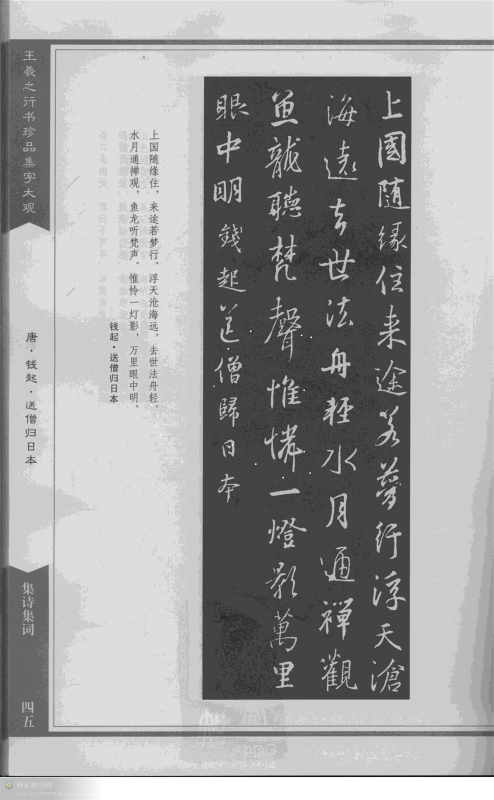 上國随缘住来途若夢行浮天滄
海遠去世法舟輕水月通禅觀
魚龍聴梵聲惟憐一燈影萬里
眼中明錢起送僧歸日本
上国随缘住，来途若梦行。浮天沧海远，去世法舟轻。
水月通禅观，鱼龙听梵声。惟怜一灯影，万里眼中明。
钱起·送僧归日本
王羲之行书珍品集字大观
唐·钱起·送僧归日本
集诗集词
四五